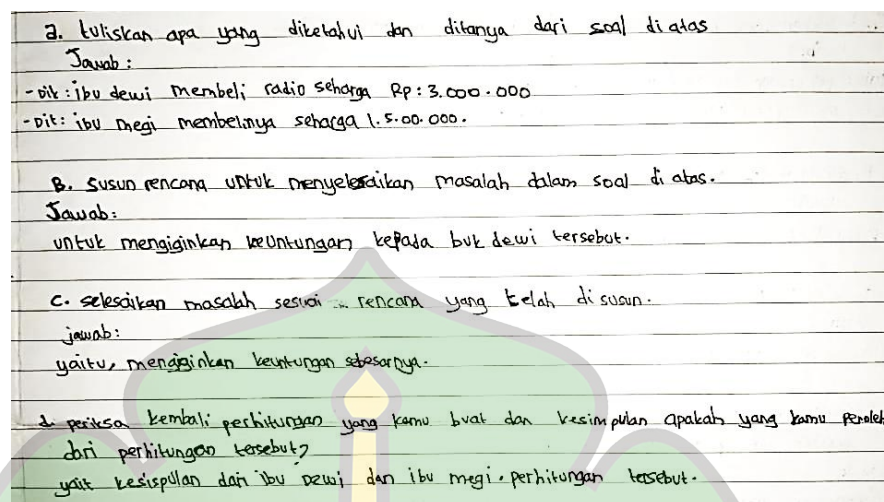 a. tuliskan apa yang diketahui dan ditanya dari soal di atas
Jawab :
- Dik : ibu dewi membeli radio seharga Rp : 3.000.000
- Dit : ibu megi membelinya seharga 1.5.00.000.
B. Susun rencana untuk menyelesaikan masalah dalam soal di atas.
Jawab :
untuk mengiginkan keuntungan kepada buk dewi tersebut.
C. selesaikan masalah sesuai rencana yang telah di susun.
jawab :
yaitu, mengiginkan keuntungan sebesarnya.
d periksa kembali perhitungan yang kamu buat dan kesimpulan apakah yang kamu peroleh
dari perhitungan tersebut?
yait kesispulan dari ibu Dewi dan ibu megi. perhitungan tersebut.